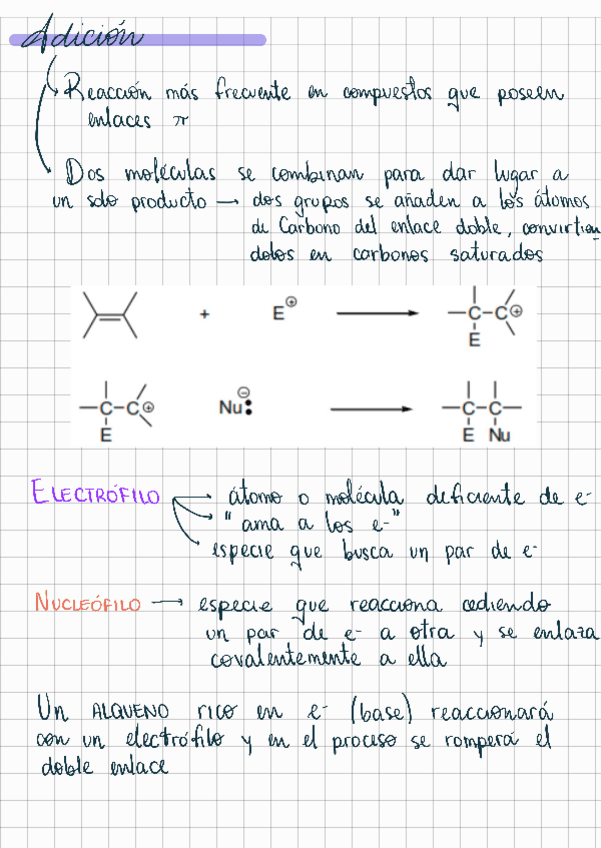 Adición
Reacción más frecuente en compuestos que poseen
enlaces π
Dos moléculas se combinan para dar lugar a
un solo producto → dos grupos se añaden a los átomos
de Carbono del enlace doble, convirtien
dolos en carbonos saturados
+ E⊕ → —C—C⊕
E
—C—C⊕ Nu:⊖ → —C—C—
E E Nu
ELECTRÓFILO → átomo o molécula deficiente de e-
"ama a los e-"
especie que busca un par de e-
NUCLEÓFILO → especie que reacciona cediendo
un par de e- a otra y se enlaza
covalentemente a ella
Un ALQUENO rico en e- (base) reaccionará
con un electrófilo y en el proceso se romperá el
doble enlace